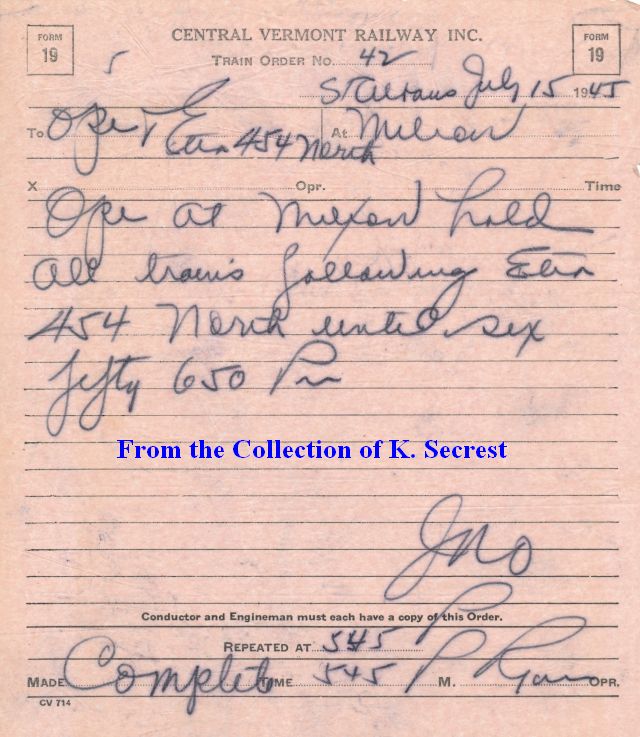 FORM 19
CENTRAL VERMONT RAILWAY INC.
FORM 19
5
TRAIN ORDER No. 42
St Albans July 15 1945
To Opr & Extra 454 North At Milton
X Opr. Time
Opr at Milton hold
all trains following Extra
454 North until six
fifty 650 Pm
From the Collection of K. Secrest
JNO
Conductor and Engineman must each have a copy of this Order.
P
REPEATED AT 545
MADE Complete TIME 545 P M. Ryan OPR.
CV 714